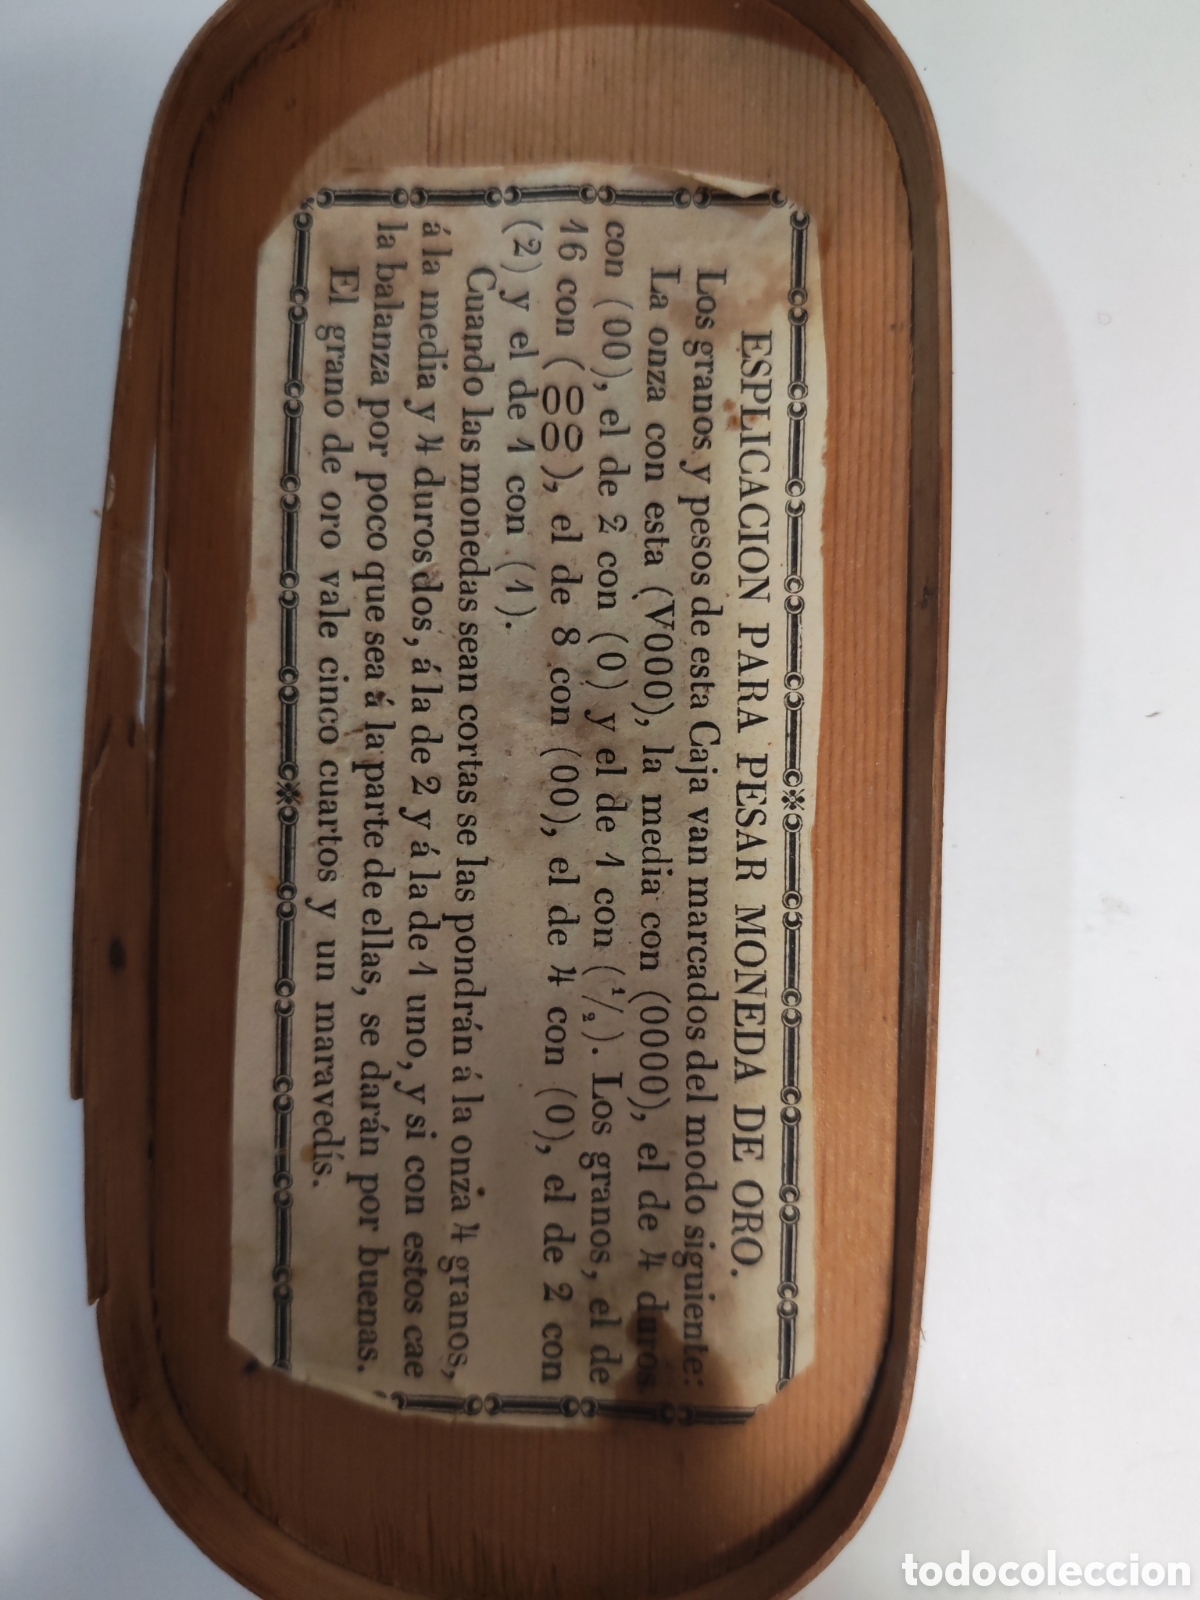 ESPLICACION PARA PESAR MONEDA DE ORO.
Los granos y pesos de esta Caja van marcados del modo siguiente:
La onza con esta (V000), la media con (0000), el de 4 duros
con (00), el de 2 con (0) y el de 1 con (1/2). Los granos, el de
16 con (0000), el de 8 con (00), el de 4 con (0), el de 2 con
(2) y el de 1 con (1).
Cuando las monedas sean cortas se las pondrán á la onza 4 granos,
á la media y 4 duros dos, á la de 2 y á la de 1 uno, y si con estos cae
la balanza por poco que sea á la parte de ellas, se darán por buenas.
El grano de oro vale cinco cuartos y un maravedís.
todocoleccion